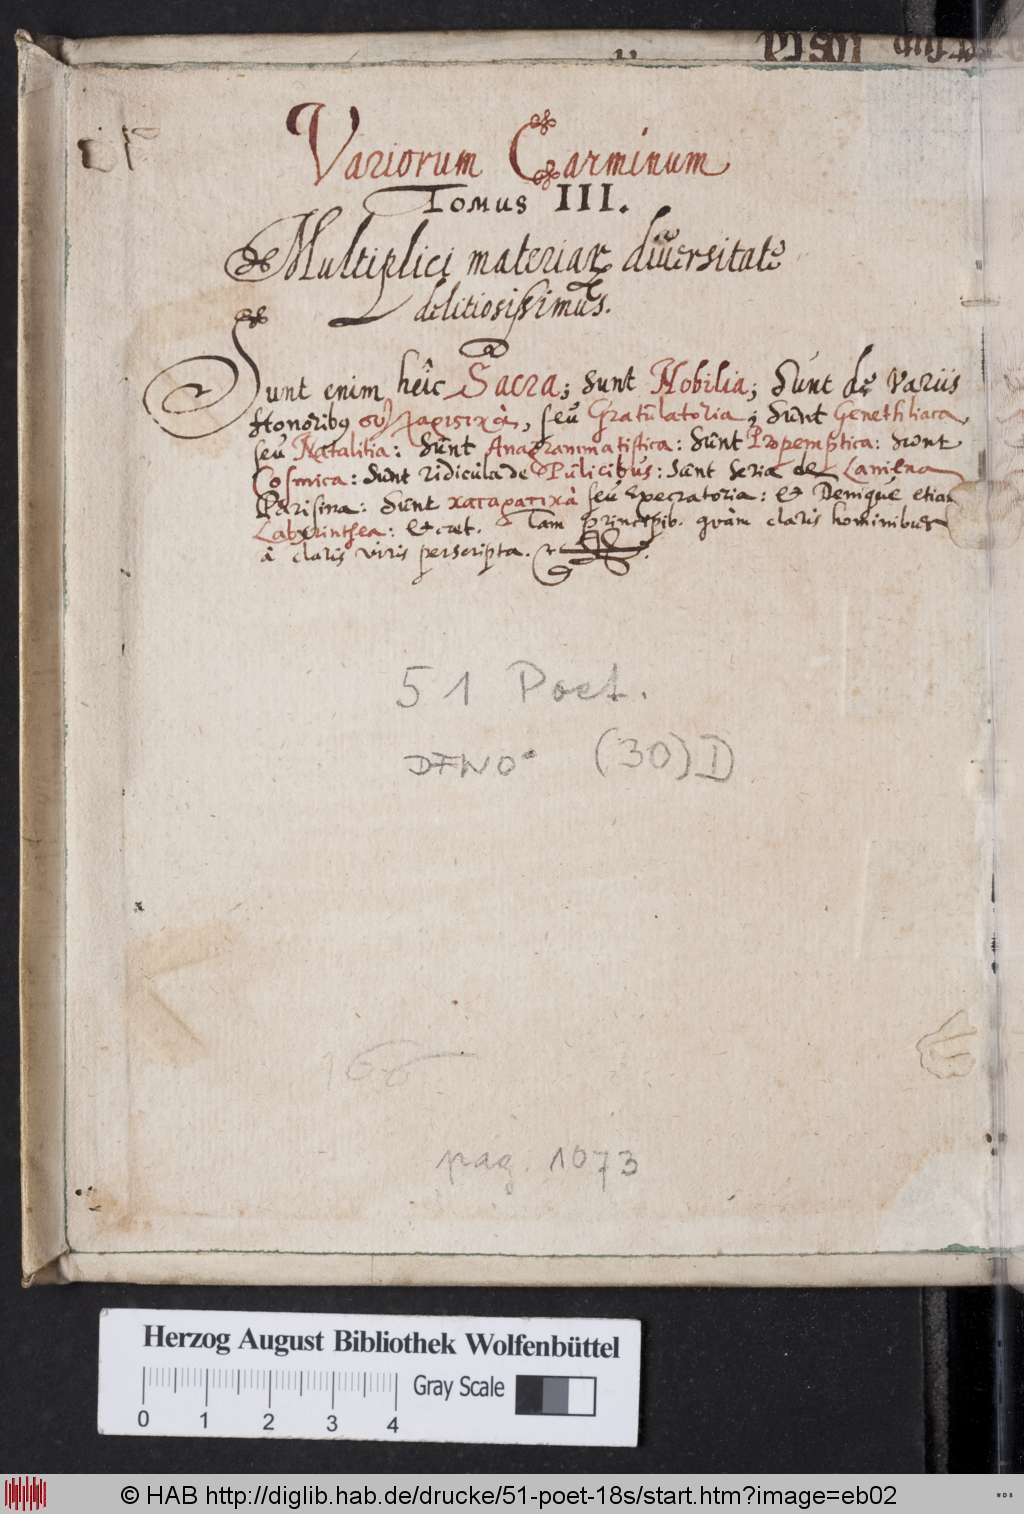 Variorum Carminum
Tomus III.
Multiplici materiar diversitate
delitiosissimus.
Sunt enim heîc Sacra; sunt Nobilia; Sunt de variis
Honoribus, seu Gratulatoria; Sunt Genethliaca,
seu Natalitia: Sunt Anagrammatistica: Sunt Propemptica: sunt
Cosmica: Sunt ridicula de Pulicibus: sunt seria de Laniena
Parisina: Sunt καταρατικὰ seu Execratoria: et Denique etiam
Labyrinthea: et cret. Tam Principib. quàm claris hominibus
à claris viris perscripta.
51 Poet.
(30) D
166
pag. 1073
Herzog August Bibliothek Wolfenbüttel
Gray Scale
0 1 2 3 4
© HAB http://diglib.hab.de/drucke/51-poet-18s/start.htm?image=eb02